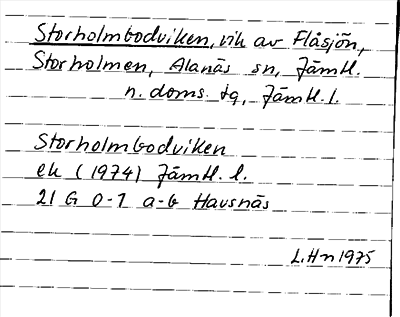 Storholmbodviken, vik av Flåsjön,
Storholmen, Alanäs sn, Jämtl.
n. doms. tg, Jämtl. l.
Storholmbodviken
ek (1974) Jämtl. l.
21 G 0-1 a-b Havsnäs
L.Hn 1975